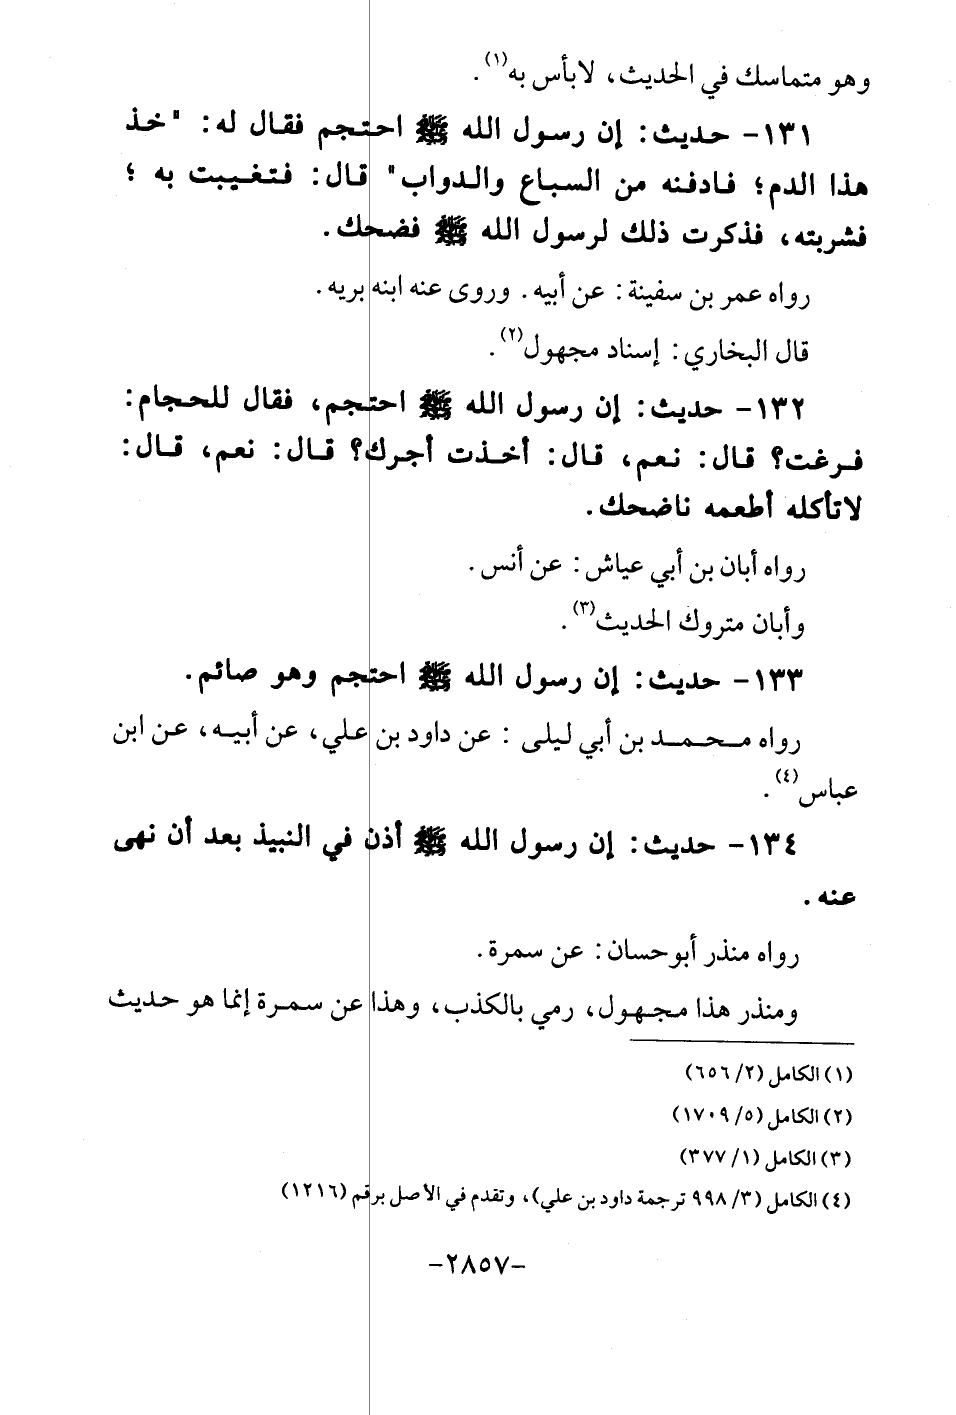 وهو متماسك في الحديث، لابأس به(١).
١٣١- حديث: إن رسول الله ﷺ احتجم فقال له: "خذ
هذا الدم؛ فادفنه من السباع والدواب" قال: فتغيبت به ؛
فشربته، فذكرت ذلك لرسول الله ﷺ فضحك.
رواه عمر بن سفينة: عن أبيه. وروى عنه ابنه بريه.
قال البخاري: إسناد مجهول(٢).
١٣٢- حديث: إن رسول الله ﷺ احتجم، فقال للحجام:
فرغت؟ قال: نعم، قال: أخذت أجرك؟ قال: نعم، قال:
لاتأكله أطعمه ناضحك.
رواه أبان بن أبي عياش: عن أنس.
وأبان متروك الحديث(٣).
١٣٣- حديث: إن رسول الله ﷺ احتجم وهو صائم.
رواه محمد بن أبي ليلى : عن داود بن علي، عن أبيه، عن ابن
عباس(٤).
١٣٤- حديث: إن رسول الله ﷺ أذن في النبيذ بعد أن نهى
عنه.
رواه منذر أبوحسان: عن سمرة.
ومنذر هذا مجهول، رمي بالكذب، وهذا عن سمرة إنما هو حديث
(١) الكامل (٢/ ٦٥٦)
(٢) الكامل (٥/ ١٧٠٩)
(٣) الكامل (١/ ٣٧٧)
(٤) الكامل (٣/ ٩٩٨ ترجمة داود بن علي)، وتقدم في الأصل برقم (١٢١٦)
-٢٨٥٧-